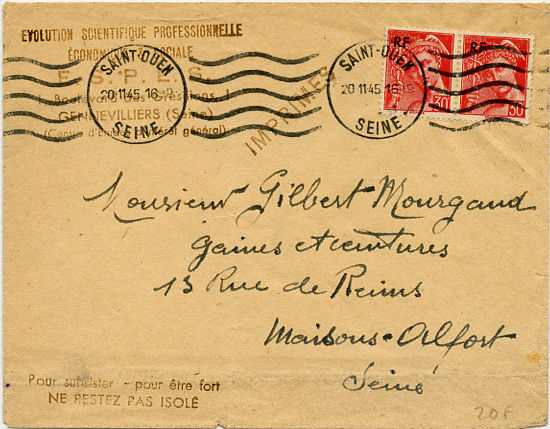 EVOLUTION SCIENTIFIQUE PROFESSIONNELLE
ÉCONOMIQUE & SOCIALE
E. S. P. E. S.
Boulevard des Grésillons, 1
GENNEVILLIERS (Seine)
(Centre d'Entr' intérêt général)
SAINT-OUEN
20 11 45. 16
SEINE
IMPRIMÉS
SAINT-OUEN
20 11 45. 16
SEINE
RF
RF
30
30
Monsieur Gilbert Mourgaud
gaines et ceintures
13 Rue de Reims
Maisons-Alfort
Seine
Pour subsister - pour être fort
NE RESTEZ PAS ISOLÉ
20F